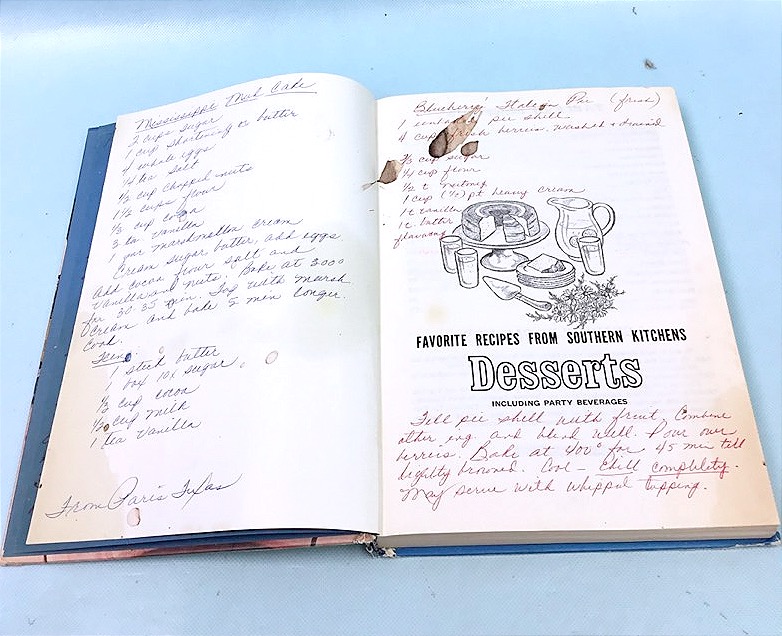 Mississippi Mud Cake
2 cups sugar
1 cup shortening or butter
4 whole eggs
1/4 tea salt
1/3 cup chopped nuts
1 1/2 cups flour
1/3 cup cocoa
3 tea vanilla
1 jar marshmallow cream
Cream sugar, butter, add eggs.
Add cocoa flour salt and
Vanilla and nuts. Bake at 300°
for 30-35 min. Top with marsh.
Cream and bake 5 min longer.
Cool.
Icing:
1 stick butter
1 box 10x sugar
1/3 cup cocoa
cup milk
1 tea vanilla
From Paris Texas
Pie (fresh)
1 pie shell
4 cups fresh berries. washed & drained
cup sugar
1/4 cup flour
1/2 t nutmeg
1 cup (1/2) pt heavy cream
1 t vanilla
1 t butter
flavoring
FAVORITE RECIPES FROM SOUTHERN KITCHENS
Desserts
INCLUDING PARTY BEVERAGES
Fill pie shell with fruit. Combine
other ing. and blend well. Pour over
berries. Bake at 400° for 45 min till
lightly browned. Cool - Chill completely.
May serve with whipped topping.